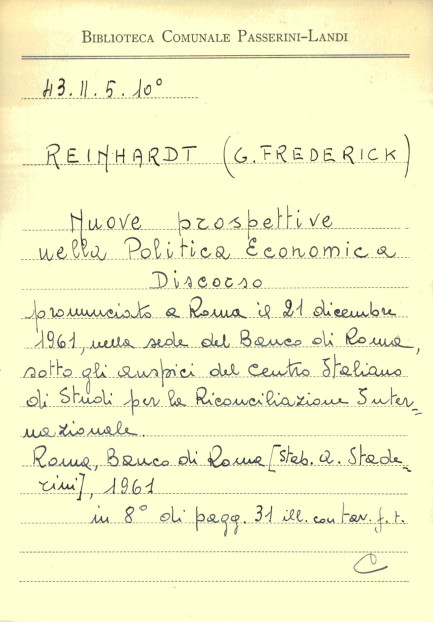 BIBLIOTECA COMUNALE PASSERINI-LANDI
43.II.5.10°
REINHARDT (G. FREDERICK)
Nuove prospettive
nella Politica Economica
Discorso
pronunciato a Roma il 21 dicembre
1961, nella sede del Banco di Roma,
sotto gli auspici del Centro Italiano
di Studi per la Riconciliazione Inter-
nazionale.
Roma, Banco di Roma [Stab. A. Stade-
rini], 1961
in 8° di pagg. 31 ill. con tav. f. t.
C